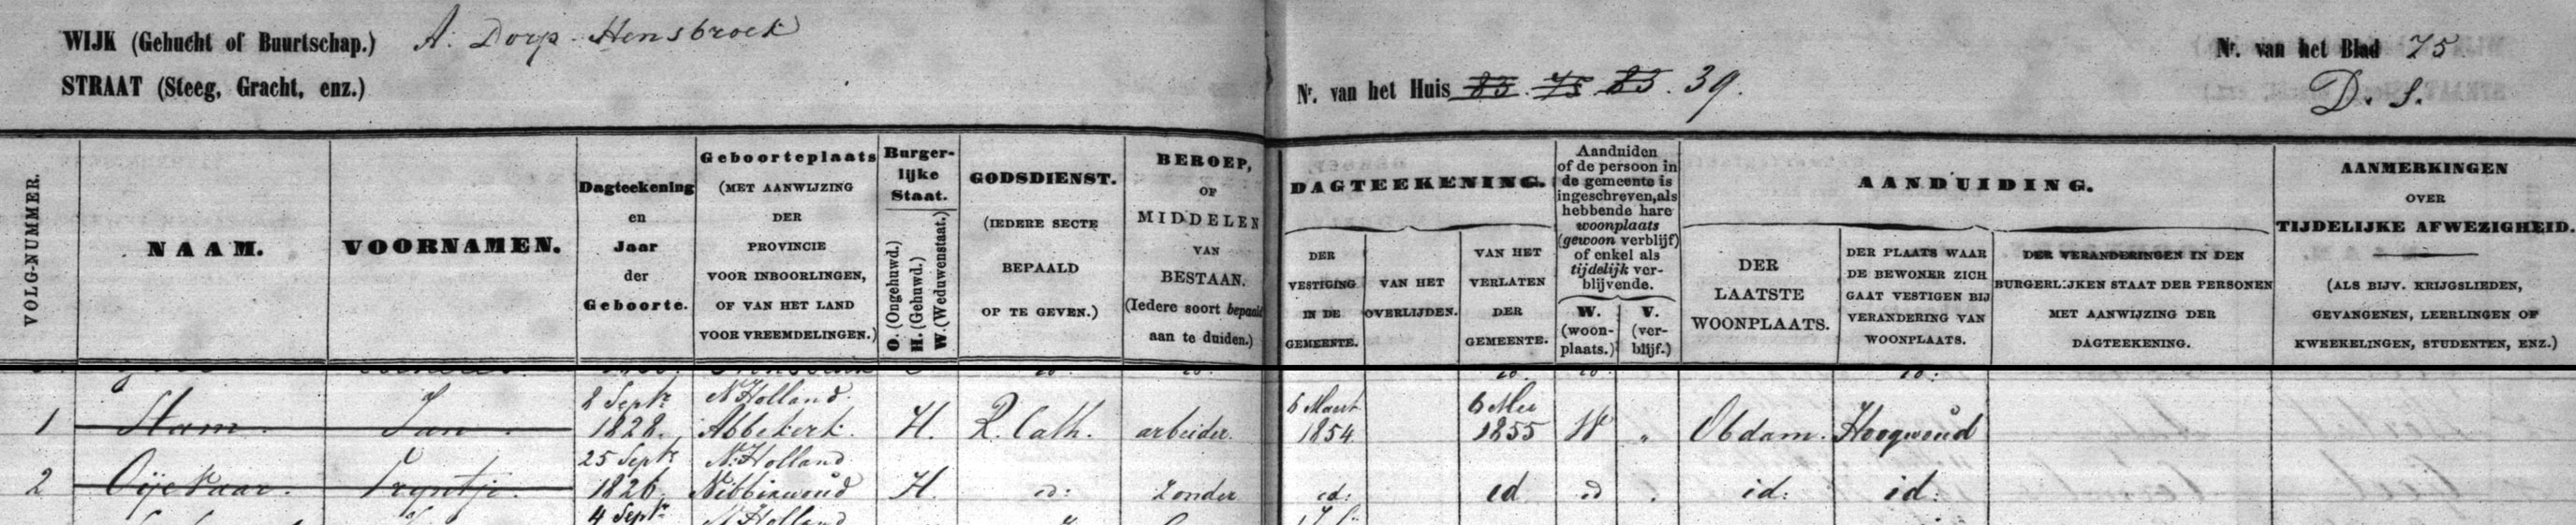 WIJK (Gehucht of Buurtschap.) A. Dorp Hensbroek
STRAAT (Steeg, Gracht, enz.)
Nr. van het Huis 83. 75 83. 39.
Nr. van het Blad 75
D. S.
VOLG-NUMMER.
NAAM.
VOORNAMEN.
Dagteekening
en
Jaar
der
Geboorte.
Geboorteplaats
(MET AANWIJZING
DER
PROVINCIE
VOOR INBOORLINGEN,
OF VAN HET LAND
VOOR VREEMDELINGEN.)
Burger-
lijke
Staat.
O. (Ongehuwd.)
H. (Gehuwd.)
W. (Weduwenstaat.)
GODSDIENST.
(IEDERE SECTE
BEPAALD
OP TE GEVEN.)
BEROEP,
OF
MIDDELEN
VAN
BESTAAN.
(Iedere soort bepaald
aan te duiden.)
DAGTEEKENING.
DER
VESTIGING
IN DE
GEMEENTE.
VAN HET
OVERLIJDEN.
VAN HET
VERLATEN
DER
GEMEENTE.
Aanduiden
of de persoon in
de gemeente is
ingeschreven, als
hebbende hare
woonplaats
(gewoon verblijf)
of enkel als
tijdelijk ver-
blijvende.
W.
(woon-
plaats.)
V.
(ver-
blijf.)
AANDUIDING.
DER
LAATSTE
WOONPLAATS.
DER PLAATS WAAR
DE BEWONER ZICH
GAAT VESTIGEN BIJ
VERANDERING VAN
WOONPLAATS.
DER VERANDERINGEN IN DEN
BURGERLIJKEN STAAT DER PERSONEN
MET AANWIJZING DER
DAGTEEKENING.
AANMERKINGEN
OVER
TIJDELIJKE AFWEZIGHEID.
(ALS BIJV. KRIJGSLIEDEN,
GEVANGENEN, LEERLINGEN OF
KWEEKELINGEN, STUDENTEN, ENZ.)
8 Septr N Holland. 6 Maart 6 Mei
1 Stam. Jan. 1828. Abbekerk. H. R. Cath. arbeider. 1854 1855 W " Obdam. Hoogwoud
25 Septr N. Holland
2 Oijevaar. Tryntje. 1826. Nibbixwoud H. id: zonder id: id id . id: id:
4 Septr N Holland